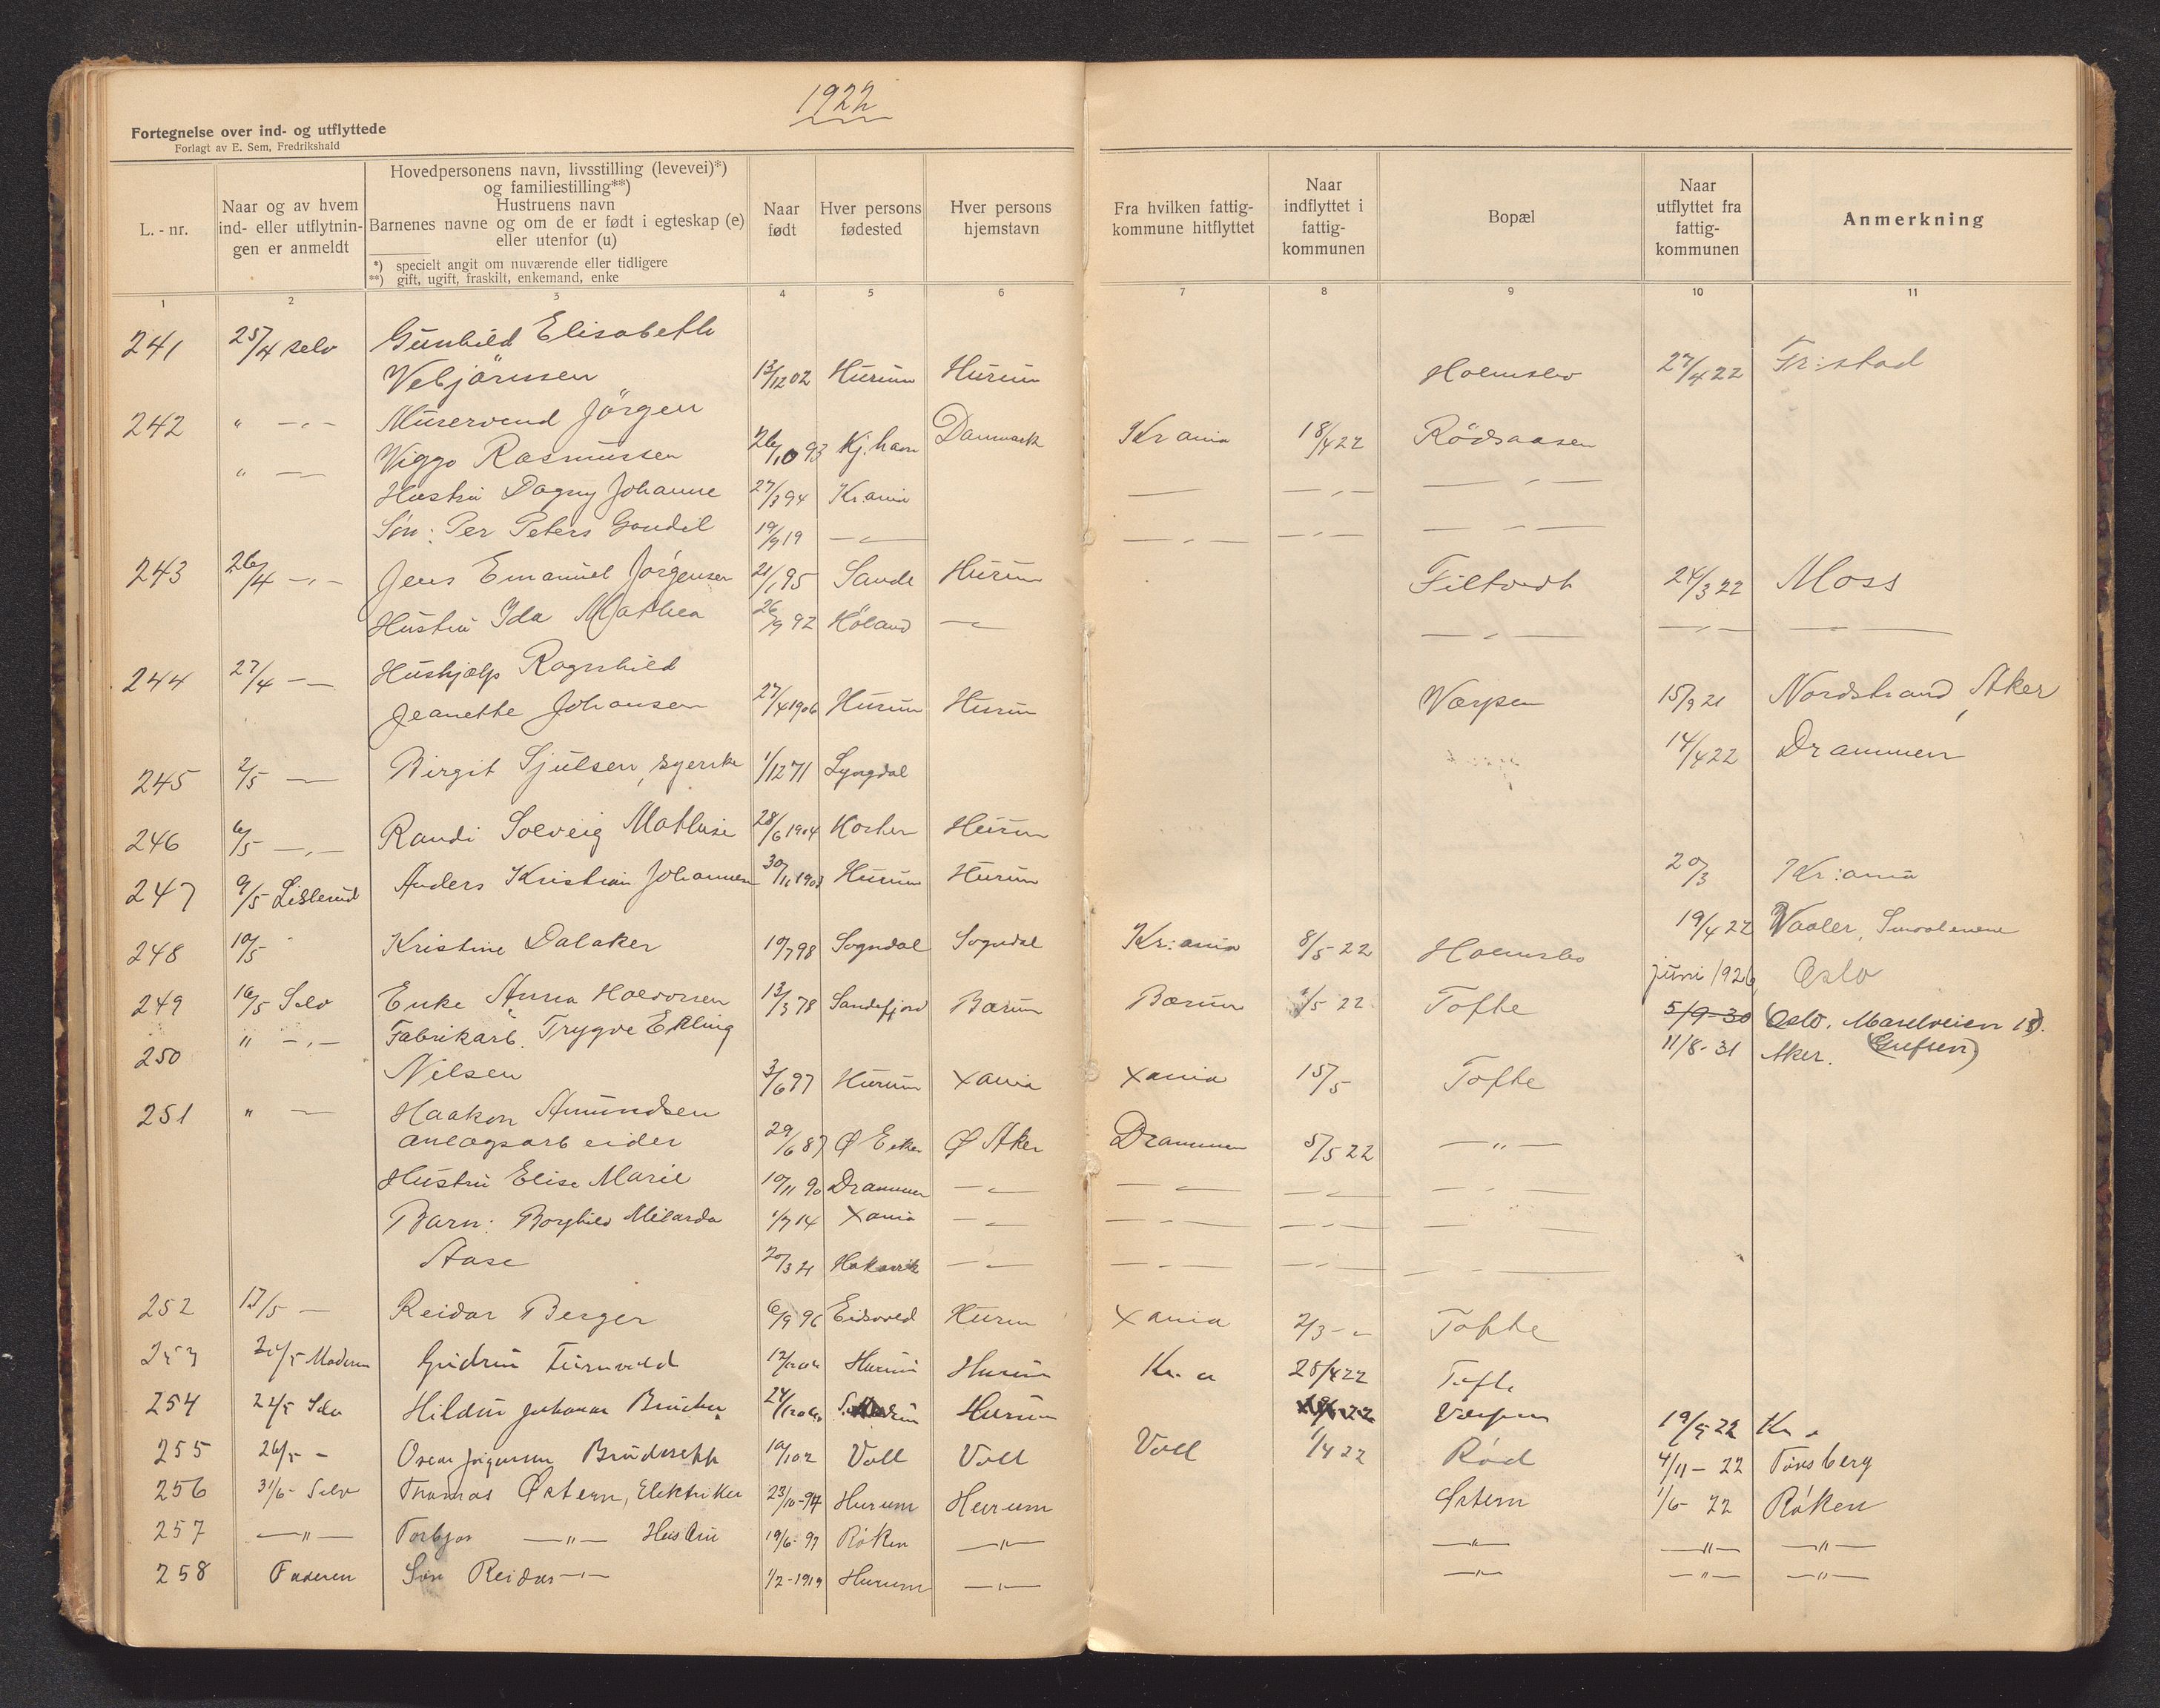 1922
Fortegnelse over ind- og utflyttede
Forlagt av E. Sem, Fredrikshald
L. - nr.
Naar og av hvem ind- eller utflytnin- gen er anmeldt
Hovedpersonens navn, livsstilling (levevei)*)
og familiestilling**)
Hustruens navn
Barnenes navne og om de er født i egteskap (e)
eller utenfor (u)
*) specielt angit om nuværende eller tidligere
**) gift, ugift, fraskilt, enkemand, enke
Naar født
Hver persons fødested
Hver persons hjemstavn
Fra hvilken fattig- kommune hitflyttet
Naar indflyttet i fattig- kommunen
Bopæl
Naar utflyttet fra fattig- kommunen
Anmerkning
1 2 3 4 5 6 7 8 9 10 11
241 25/4 selv Gunhild Elisabeth
Vebjörnsen 13/12 02 Hurum Hurum Holmsbo 27/4 22 Fr:stad
242 " —"— Murersvend Jörgen
" — Viggo Rasmussen 26/10 93 Kj.havn Danmark Kr ania 18/4 22 Rödsaasen
Hustru Dagny Johanne 27/3 94 Kr.ania — —"— —"—
Søn: Per Peters Gondil 19/9 19 —"— —"— —"— —"—
243 26/4 —"— Jens Emanuel Jörgensen 21/1 95 Sande Hurum Filtvedt 24/3 22 Moss
Hustru Ida Mathea 26/9 92 Høland —"— —"— —"— —"—
244 27/4 — Hushjælp Ragnhild
Jeanette Johansen 27/4 1906 Hurum Hurum Værpen 15/9 21 Nordstrand, Aker
245 2/5 — Birgit Sjulsen, syerske 1/12 71 Lyngdal 14/4 22 Drammen
246 6/5 —"— Randi Solveig Mathisen 28/6 1904 Hurum
247 9/5 Anders Kristian Johannesen Hurum Hurum 20/3 Kr:ania
248 10/5 Kristine Dalaker 10/7 98 Sogndal Sogndal Kr:ania 8/5 22 Holmsbo 19/4 22 Vaaler, Smaalenene
249 16/5 Selv Enke Anna Halvorsen 13/3 78 Sandefjord Bærum Bærum /5 22 Tofte juni 1926 Oslo
250 " —"— Fabrikarb. Trygve Erling 5/9-30 Oslo.
Nilsen 3/6 97 Hurum Xania Xania 15/5 Tofte 11/8-31 Aker. (Grefsen)
251 " — Haakon Amundsen
anlægsarbeider 29/6 87 Ø Eker Ø Aker Drammen 5/5 22 —"—
Hustru Elise Marie 10/11 90 Drammen —"— —"— —"— —"—
Barn: Borghild Milarda 1/7 14 Xania —"— —"— —"— —"—
Aase 20/3 21 —"— —"— —"— —"—
252 17/5 — Reidar Berger 6/9 96 Eidsvold Hurum Xania 2/3 -"- Tofte
253 Moderen Gudrun Hurum Hurum Kr. a 25/4 22 Tofte
254 22/5 Selv Hildur Johanne Hurum 19/5 22 Kr. a
255 26/5 - Oscar Jørgensen 10/1 02 Voll Voll Voll 1/4 22 Rød 4/11- 22 Tønsberg
256 31/6- Selv Thomas Østern, Elektriker 23/10-94 Hurum Hurum Østern 1/6- 22 Røken
257 —"— Torbjør —"— Hustru 19/6-97 Røken —"— —"— —"— —"—
258 Faderen Søn Reidar —"— 1/2-1919 Hurum —"— —"— —"— —"—